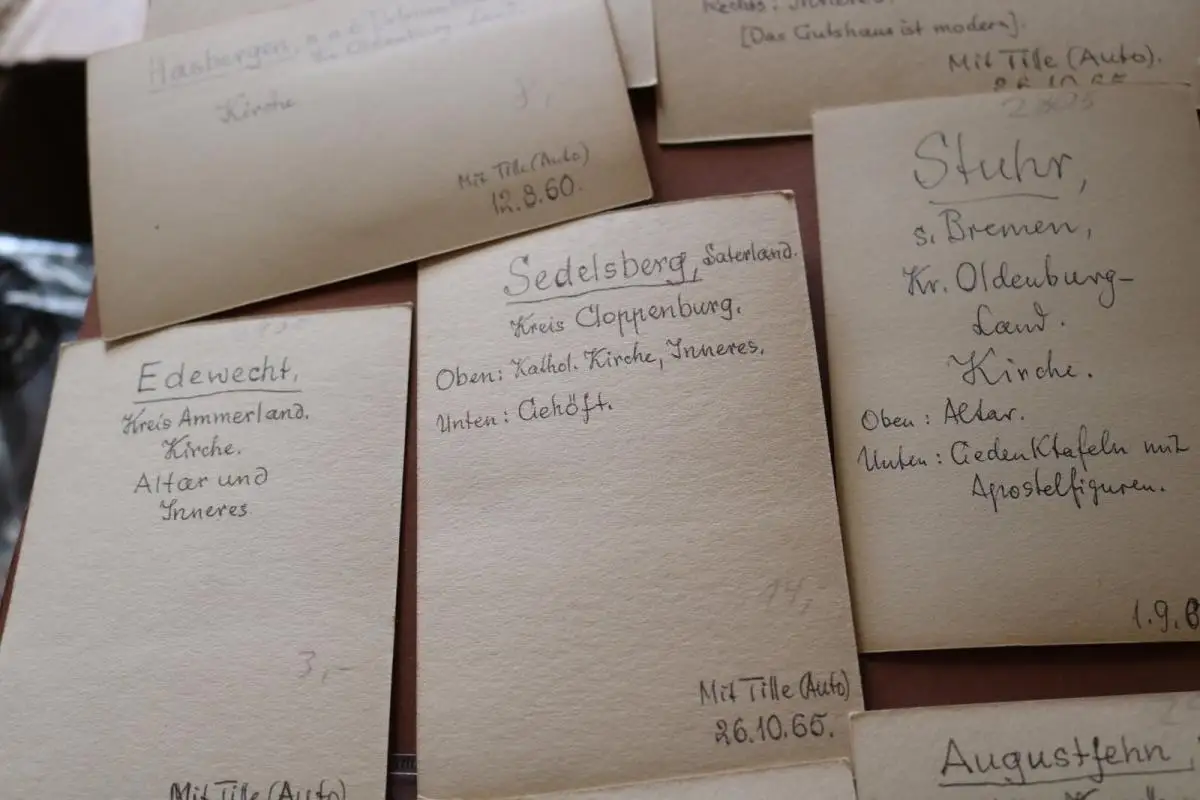 Hasbergen,
Kirche
Mit Tille (Auto)
12.8.60.
Rechts: Inneres.
[Das Gutshaus ist modern].
Mit Tille (Auto).
26.10.65
Edewecht,
Kreis Ammerland.
Kirche.
Altar und
Inneres
3,-
Mit Tille (Auto)
Sedelsberg, Saterland.
Kreis Cloppenburg.
Oben: Kathol. Kirche, Inneres.
Unten: Gehöft.
14,-
Mit Tille (Auto)
26.10.65.
Stuhr,
s. Bremen,
Kr. Oldenburg-
Land.
Kirche.
Oben: Altar.
Unten: Gedenktafeln mit
Apostelfiguren.
1.9.6
Augustfehn,